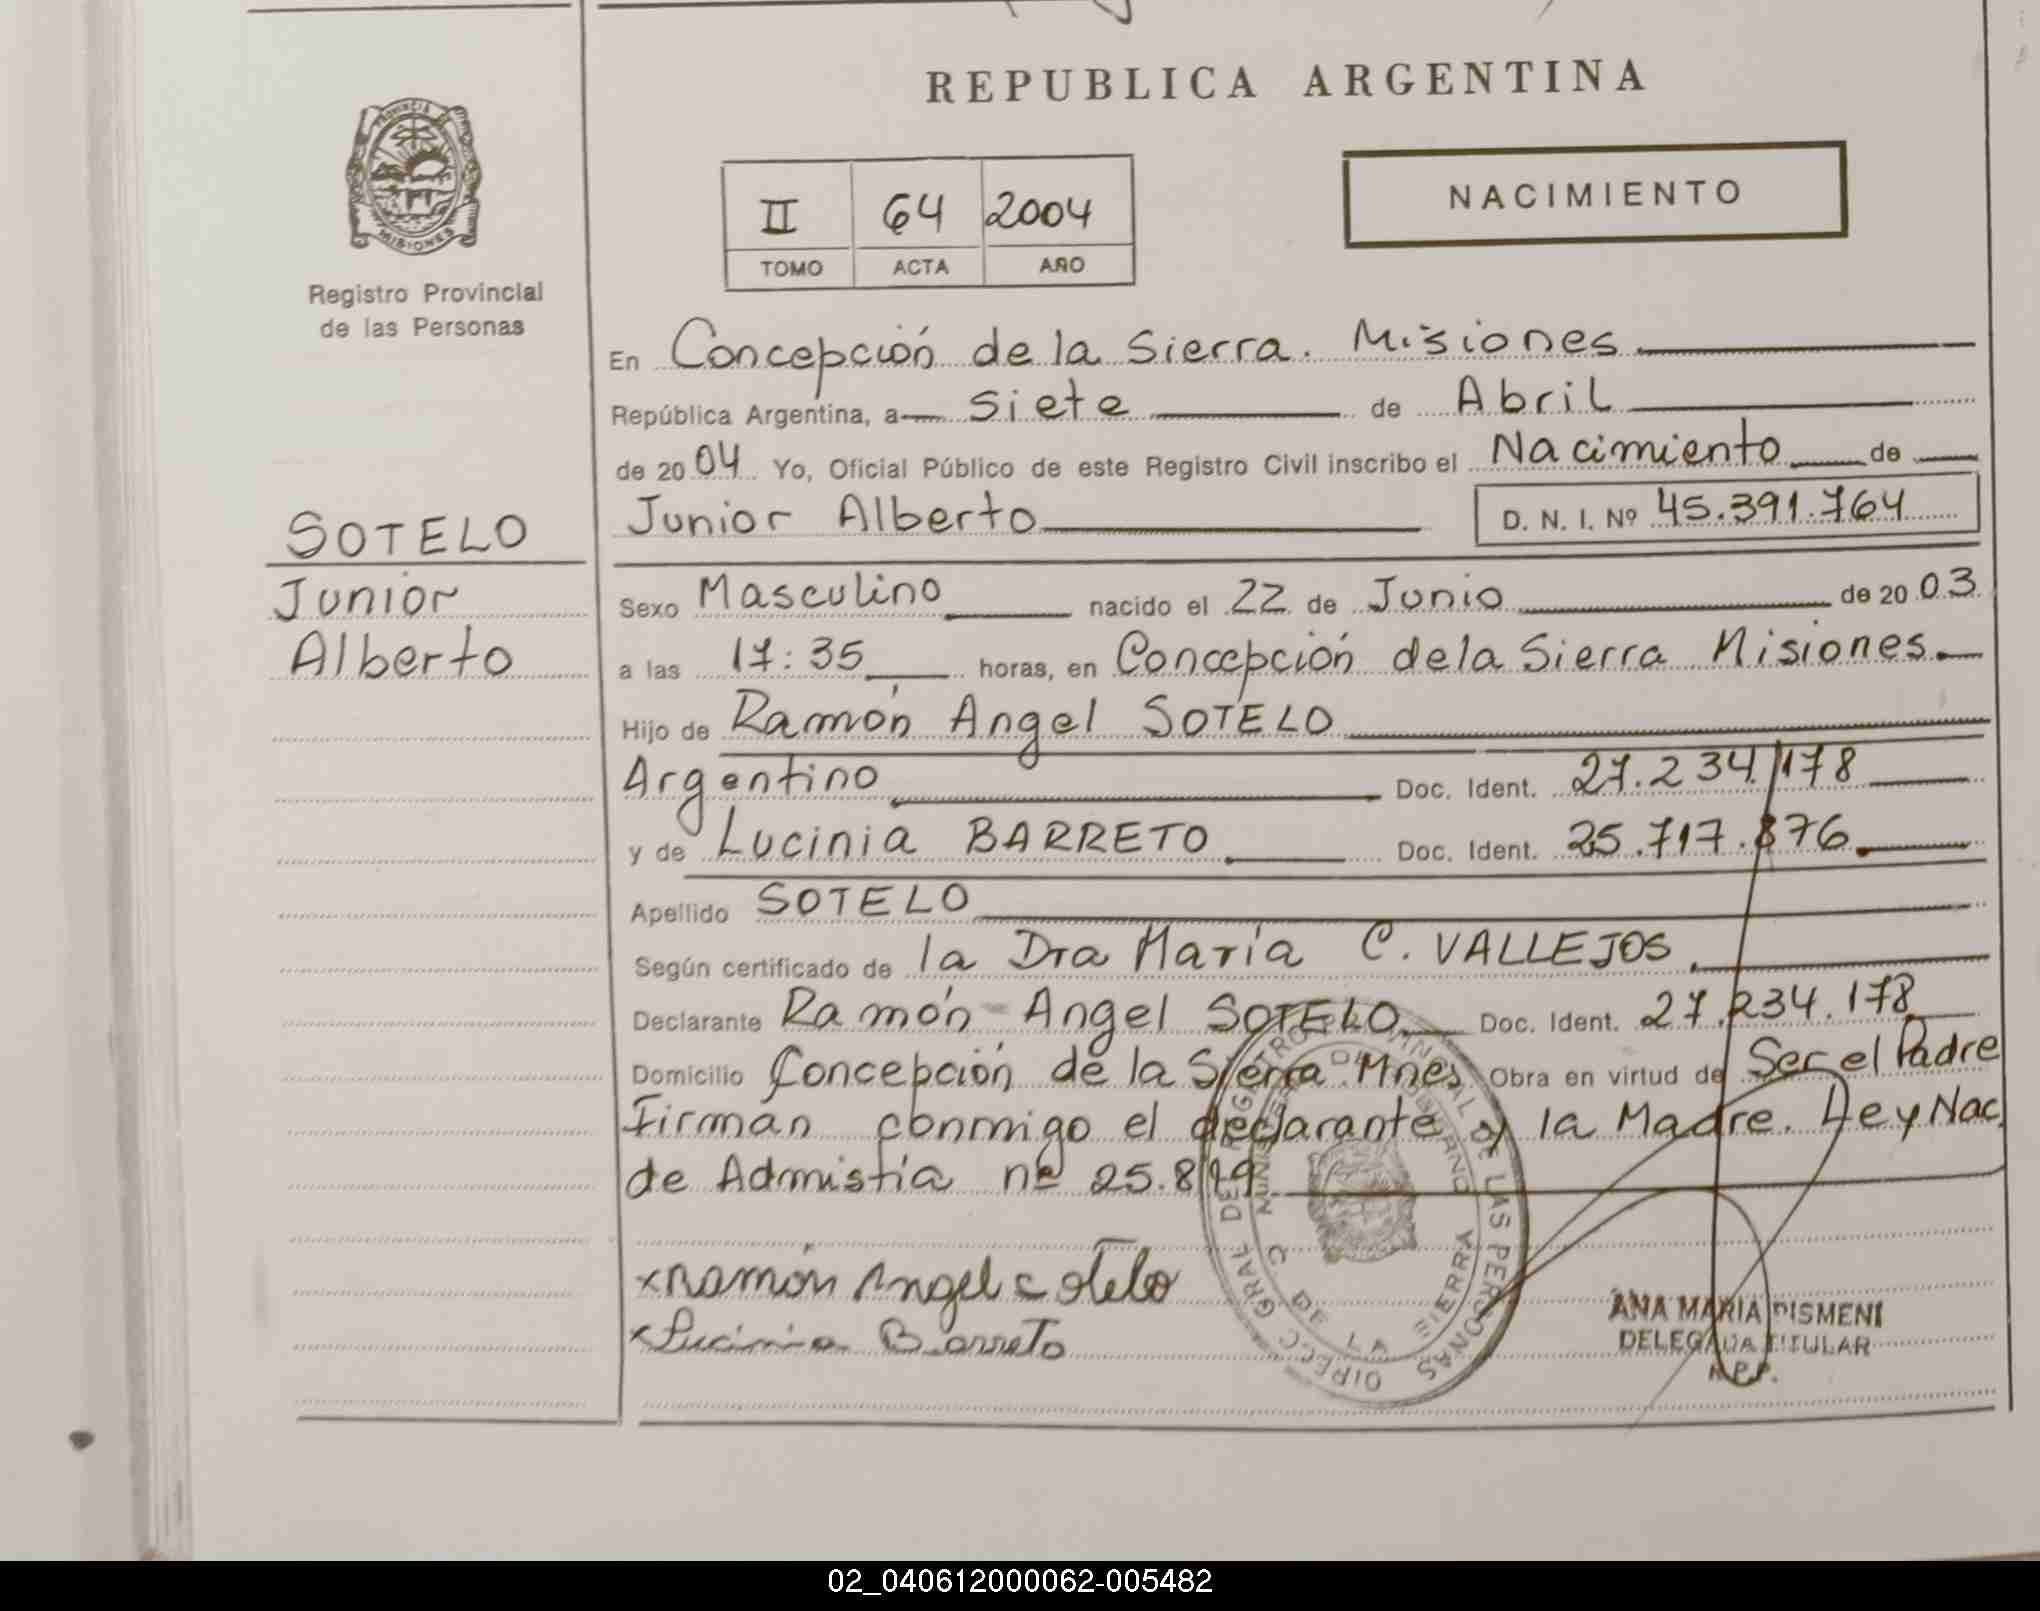 REPUBLICA ARGENTINA
PROVINCIA DE
MISIONES
Registro Provincial
de las Personas
II 64 2004
TOMO ACTA AÑO
NACIMIENTO
SOTELO
Junior
Alberto
En Concepción de la Sierra. Misiones
República Argentina, a siete de Abril
de 2004 Yo, Oficial Público de este Registro Civil inscribo el Nacimiento de
Junior Alberto D. N. I. Nº 45.391.764
Sexo Masculino nacido el 22 de Junio de 2003
a las 17:35 horas, en Concepción de la Sierra Misiones.
Hijo de Ramón Angel SOTELO
Argentino Doc. Ident. 27.234.178
y de Lucinia BARRETO Doc. Ident. 25.717.876.
Apellido SOTELO
Según certificado de la Dra María C. VALLEJOS.
Declarante Ramón Angel SOTELO Doc. Ident. 27.234.178
Domicilio Concepción de la Sierra Mnes Obra en virtud de Ser el Padre
Firman conmigo el declarante y la Madre. Ley Nac.
de Admistía nº 25.819
x Ramón Angel Sotelo
x Lucinia Barreto
C. DE LA SIERRA
ANA MARIA PISMENI
DELEGADA TITULAR
R.P.P.
02_040612000062-005482